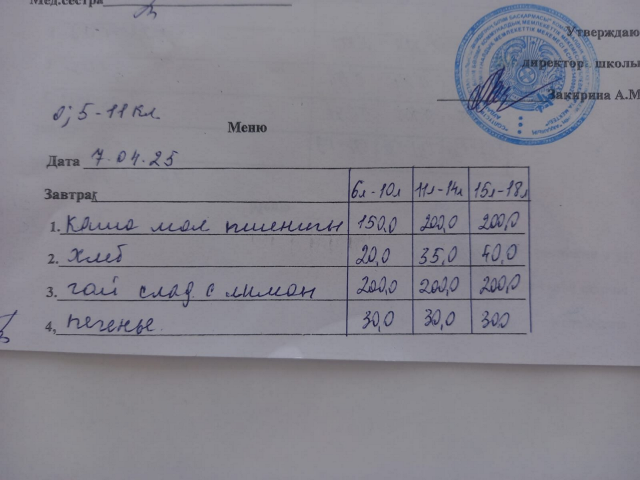 Мед.сестра
Утверждаю
директор школы
Закирина А.М
0; 5-11 кл.
Меню
Дата 7.04.25
Завтрак 6л-10л 11л-14л 15л-18л
1. Каша мол пшеничн 150,0 200,0 200,0
2. хлеб 20,0 35,0 40,0
3. чай слад с лимон 200,0 200,0 200,0
4, печенье 30,0 30,0 300